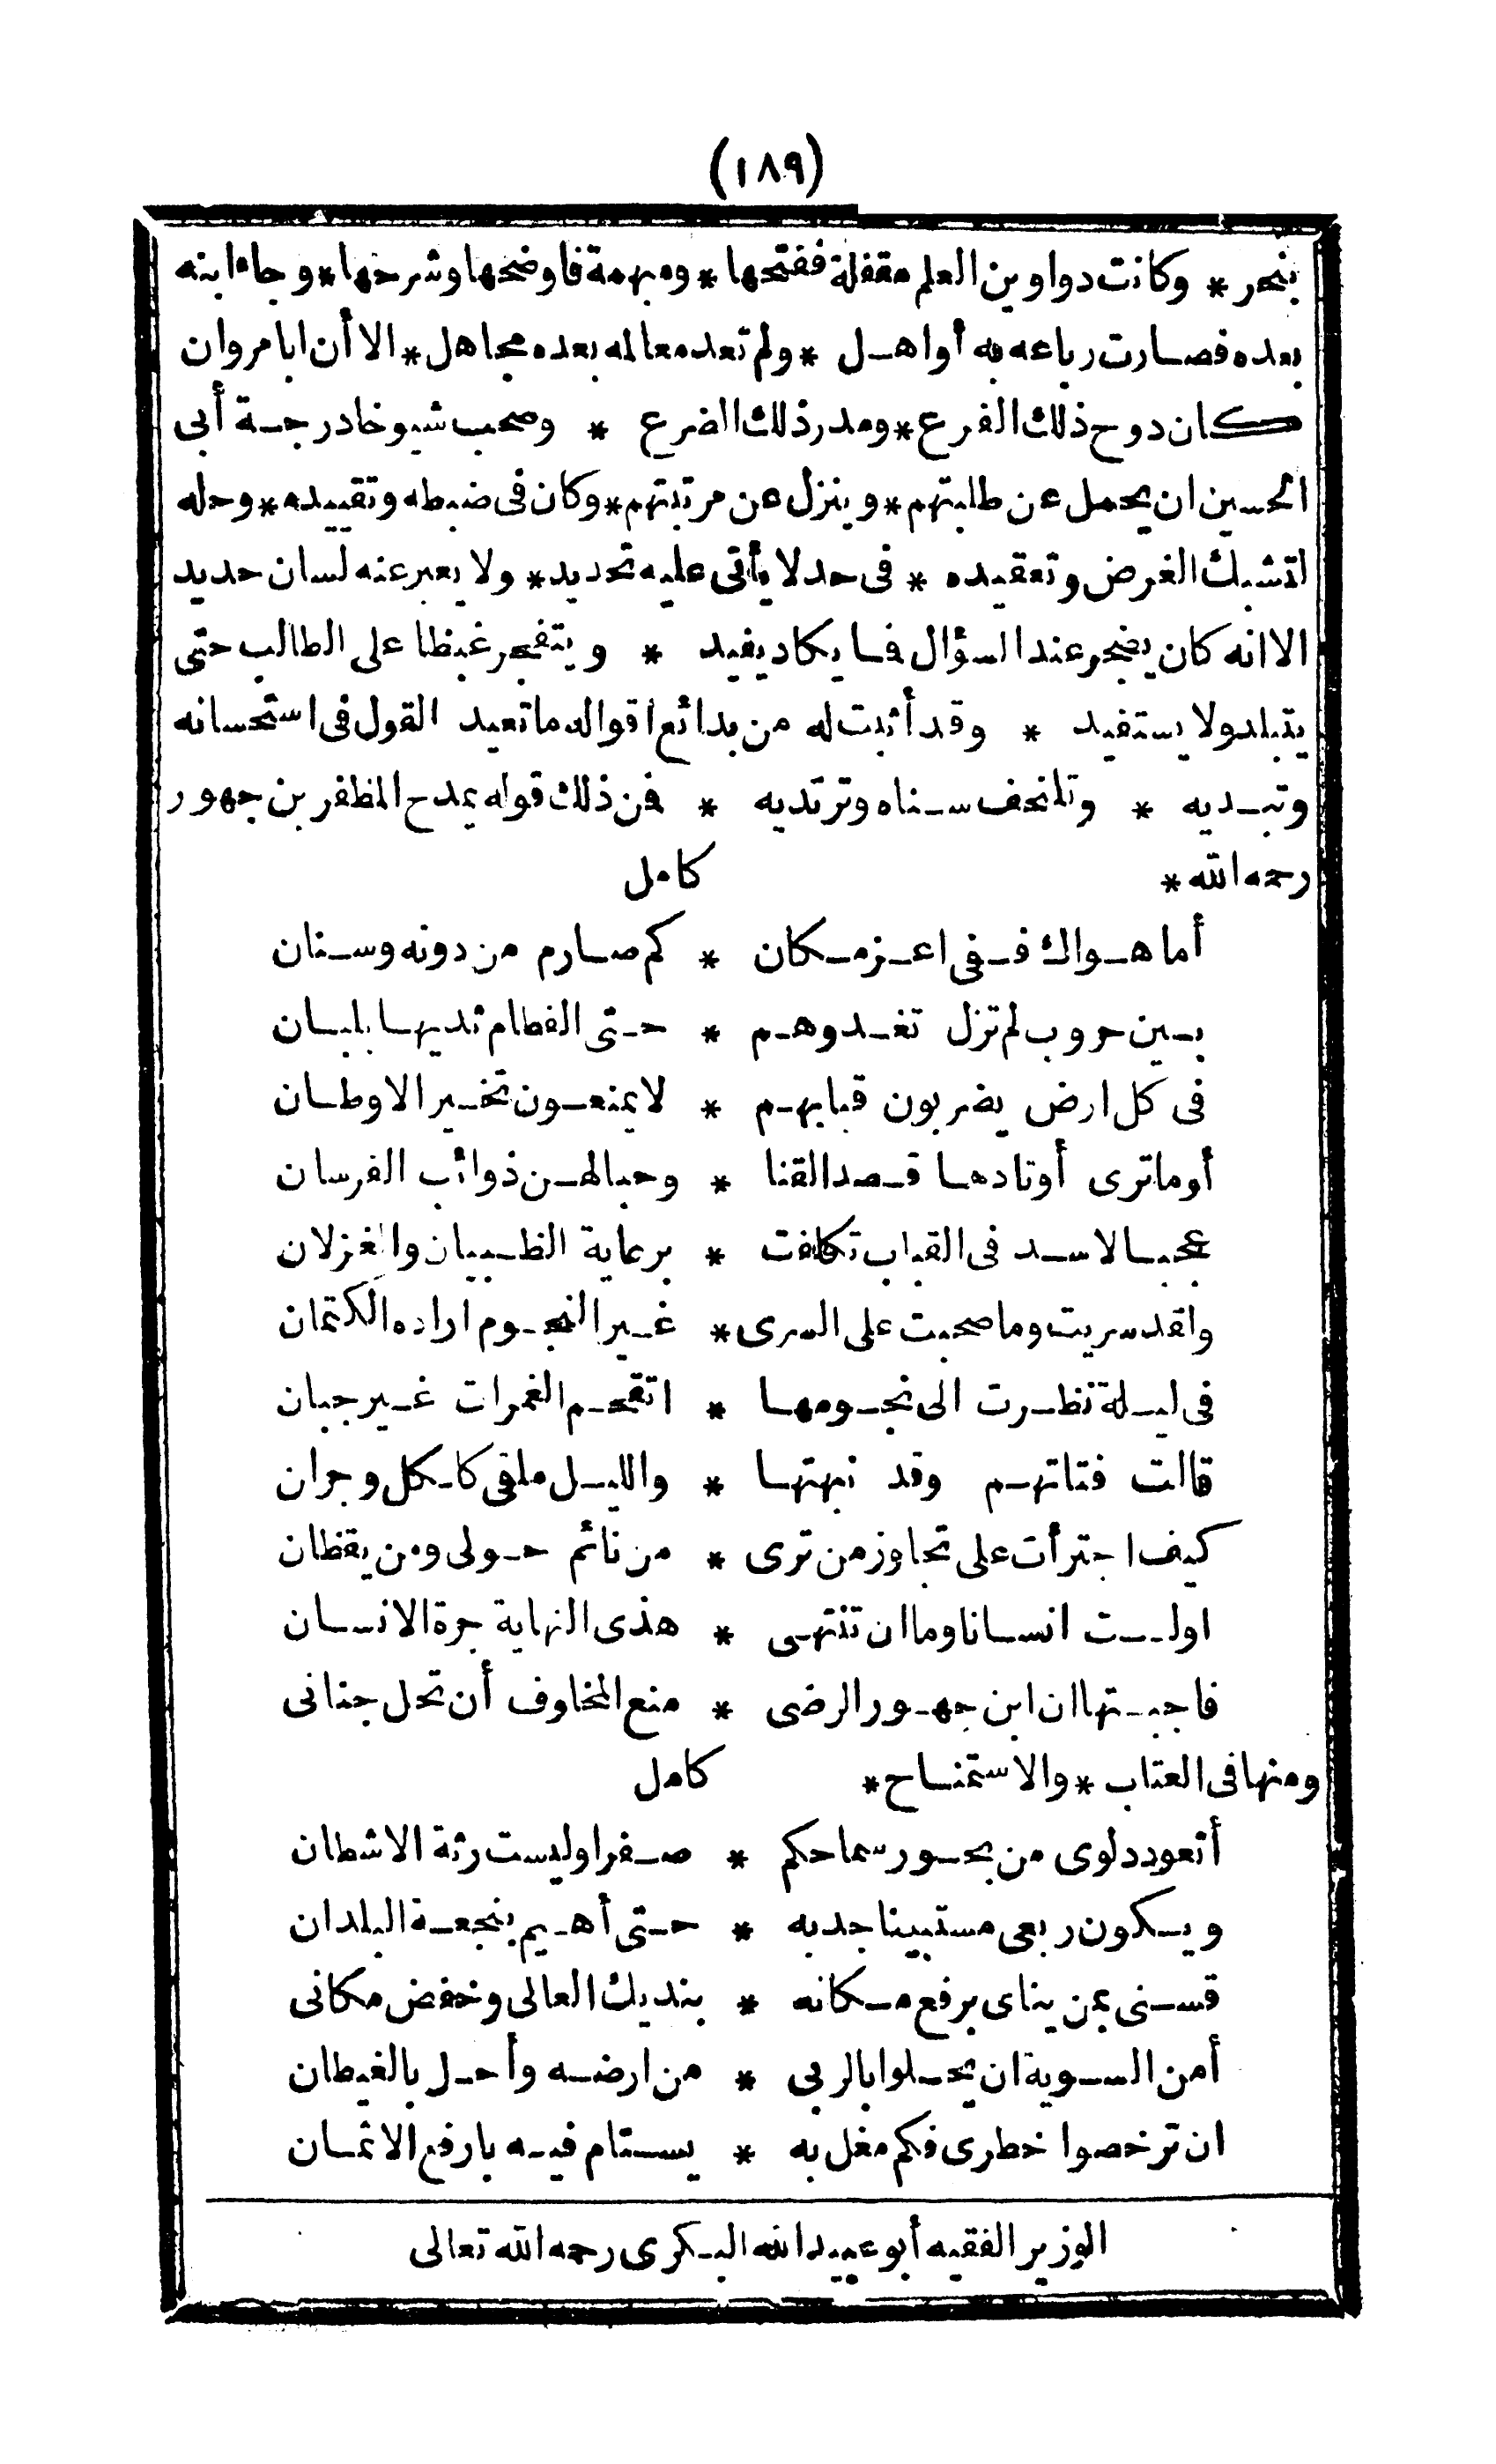 (١٨٩)
بنحر * وكانت دواوين العلم مقفلة ففتحها * ومبهمة فاوضحها وشرحها * وجاء ابنه
بعده فصارت رباعه به أواهل * ولم تعد معالمه بعده مجاهل * الا أن ابا مروان
كان دوح ذلك الفرع * ومدر ذلك الضرع * وصحب شيوخا درجة أبى
الحسين ان يحمل عن طلبتهم * وينزل عن مرتبتهم * وكان فى ضبطه وتقييده * وحله
لتشبك الغرض وتعقيده * فى حد لا يأتى عليه تحديد * ولا يعبر عنه لسان حديد
الا انه كان يضجر عند السؤال فما يكاد يفيد * ويتفجر غيظا على الطالب حتى
يتبلد ولا يستفيد * وقد أثبت له من بدائع اقواله ما تعيد القول فى استحسانه
وتبديه * وتلتحف سناه وترتديه * فمن ذلك قوله يمدح المظفر بن جهور
رحمه الله * كامل
أما هواك ففى اعز مكان * كم صارم من دونه وسنان
بين حروب لم تزل تغدوهم * حتى الفطام ثديها بلبان
فى كل ارض يضربون قبابهم * لا يمنعون تخير الاوطان
أوما ترى أوتادها قصد القنا * وحبالهن ذوائب الفرسان
عجبا لاسد فى القباب تكلفت * برعاية الظبيان والغزلان
ولقد سريت وما صحبت على السرى * غير النجوم اراده الكتمان
فى ليلة نظرت الى نجومها * اتقحم الغمرات غير جبان
قالت فتاتهم وقد نبهتها * والليل ملقى كلكل وجران
كيف اجترأت على تجاوز من ترى * من نائم حولى ومن يقظان
اولست انسانا وما ان تنتهى * هذى النهاية جرة الانسان
فاجبتها ان ابن جهور الرضى * منع المخاوف أن تحل جنانى
ومنها فى العتاب * والاستمناح * كامل
أتعود دلوى من بحور سماحكم * صفرا وليست رثة الاشطان
ويكون ربعى مستبينا جدبه * حتى أهيم بنجعة البلدان
قسنى بمن يناى برفع مكانه * بنديك العالى وخفض مكانى
أمن السوية ان يحلوا بالربى * من ارضه وأحل بالغيطان
ان ترخصوا خطرى فكم مغل به * يستام فيه بارفع الاثمان
الوزير الفقيه أبو عبيد الله البكرى رحمه الله تعالى